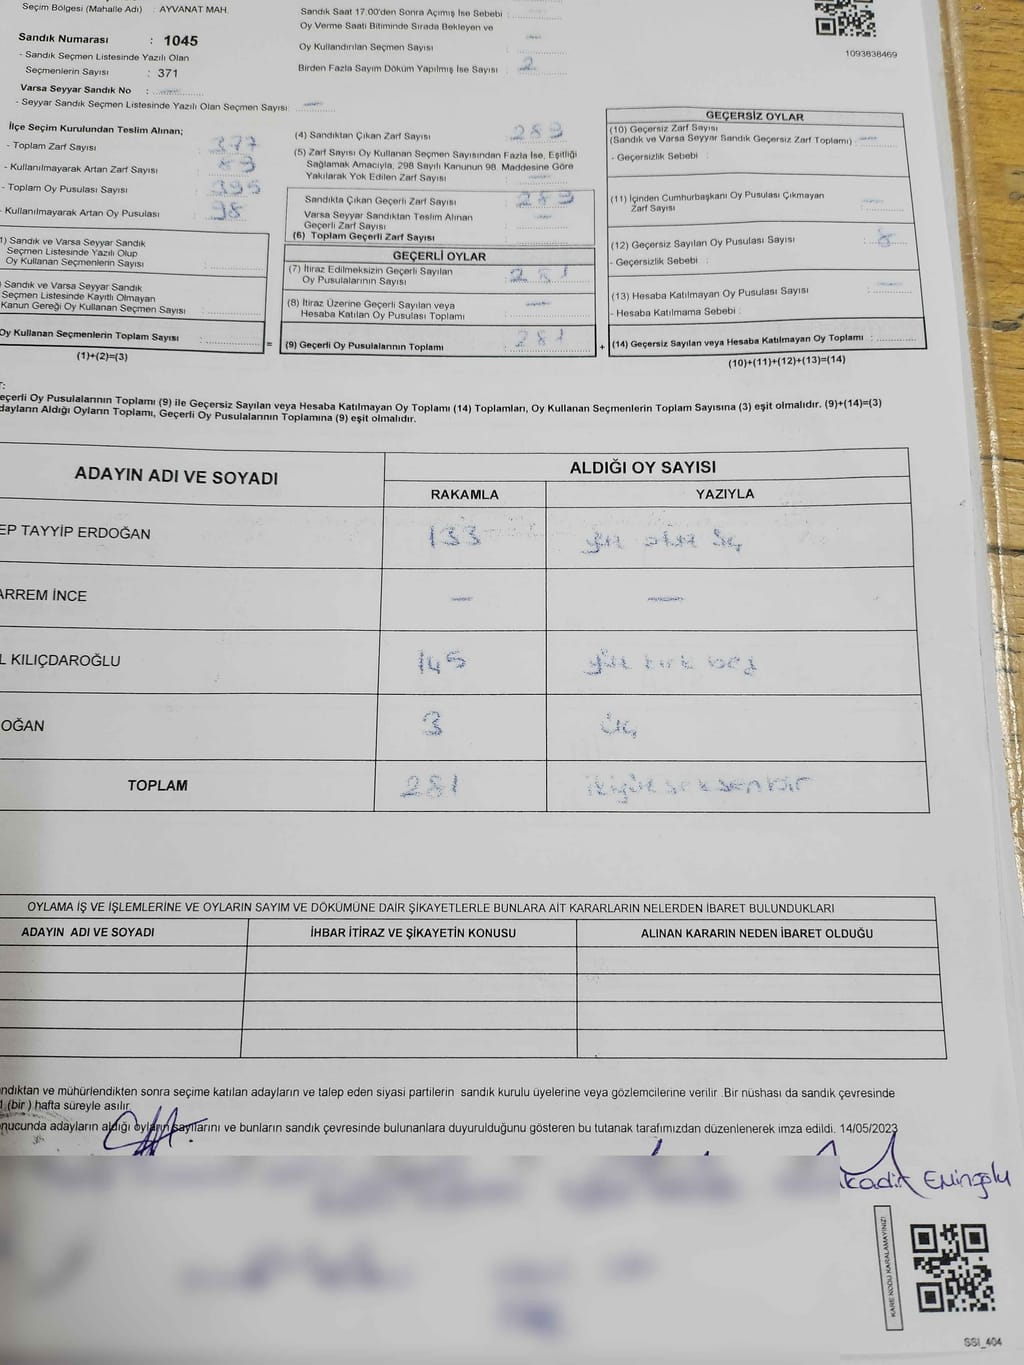 Seçim Bölgesi (Mahalle Adı) : AYVANAT MAH.
Sandık Numarası : 1045
- Sandık Seçmen Listesinde Yazılı Olan
Seçmenlerin Sayısı : 371
Varsa Seyyar Sandık No :
- Seyyar Sandık Seçmen Listesinde Yazılı Olan Seçmen Sayısı:
Sandık Saat 17:00'den Sonra Açımış İse Sebebi :
Oy Verme Saati Bitiminde Sırada Bekleyen ve
Oy Kullandırılan Seçmen Sayısı :
Birden Fazla Sayım Döküm Yapılmış İse Sayısı : 2
1093838469
İlçe Seçim Kurulundan Teslim Alınan;
- Toplam Zarf Sayısı : 377
- Kullanılmayarak Artan Zarf Sayısı :
- Toplam Oy Pusulası Sayısı : 395
- Kullanılmayarak Artan Oy Pusulası : 98
1) Sandık ve Varsa Seyyar Sandık
Seçmen Listesinde Yazılı Olup
Oy Kullanan Seçmenlerin Sayısı :
) Sandık ve Varsa Seyyar Sandık
Seçmen Listesinde Kayıtlı Olmayan
Kanun Gereği Oy Kullanan Seçmen Sayısı :
Oy Kullanan Seçmenlerin Toplam Sayısı :
(1)+(2)=(3)
(4) Sandıktan Çıkan Zarf Sayısı : 289
(5) Zarf Sayısı Oy Kullanan Seçmen Sayısından Fazla İse, Eşitliği
Sağlamak Amacıyla, 298 Sayılı Kanunun 98. Maddesine Göre
Yakılarak Yok Edilen Zarf Sayısı :
Sandıkta Çıkan Geçerli Zarf Sayısı : 289
Varsa Seyyar Sandıktan Teslim Alınan
Geçerli Zarf Sayısı :
(6) Toplam Geçerli Zarf Sayısı :
GEÇERLİ OYLAR
(7) İtiraz Edilmeksizin Geçerli Sayılan
Oy Pusulalarının Sayısı : 281
(8) İtiraz Üzerine Geçerli Sayılan veya
Hesaba Katılan Oy Pusulası Toplamı :
= (9) Geçerli Oy Pusulalarının Toplamı : 281
GEÇERSİZ OYLAR
(10) Geçersiz Zarf Sayısı
(Sandık ve Varsa Seyyar Sandık Geçersiz Zarf Toplamı) :
- Geçersizlik Sebebi :
(11) İçinden Cumhurbaşkanı Oy Pusulası Çıkmayan
Zarf Sayısı :
(12) Geçersiz Sayılan Oy Pusulası Sayısı : 8
- Geçersizlik Sebebi :
(13) Hesaba Katılmayan Oy Pusulası Sayısı :
- Hesaba Katılmama Sebebi :
+ (14) Geçersiz Sayılan veya Hesaba Katılmayan Oy Toplamı :
(10)+(11)+(12)+(13)=(14)
T:
eçerli Oy Pusulalarının Toplamı (9) ile Geçersiz Sayılan veya Hesaba Katılmayan Oy Toplamı (14) Toplamları, Oy Kullanan Seçmenlerin Toplam Sayısına (3) eşit olmalıdır. (9)+(14)=(3)
dayların Aldığı Oyların Toplamı, Geçerli Oy Pusulalarının Toplamına (9) eşit olmalıdır.
ADAYIN ADI VE SOYADI
ALDIĞI OY SAYISI
RAKAMLA YAZIYLA
EP TAYYİP ERDOĞAN 133 yüz otuz üç
ARREM İNCE
L KILIÇDAROĞLU 145 yüz kırk beş
OĞAN 3 üç
TOPLAM 281 ikiyüz seksen bir
OYLAMA İŞ VE İŞLEMLERİNE VE OYLARIN SAYIM VE DÖKÜMÜNE DAİR ŞİKAYETLERLE BUNLARA AİT KARARLARIN NELERDEN İBARET BULUNDUKLARI
ADAYIN ADI VE SOYADI İHBAR İTİRAZ VE ŞİKAYETİN KONUSU ALINAN KARARIN NEDEN İBARET OLDUĞU
ndıktan ve mühürlendikten sonra seçime katılan adayların ve talep eden siyasi partilerin sandık kurulu üyelerine veya gözlemcilerine verilir .Bir nüshası da sandık çevresinde
1 (bir ) hafta süreyle asılır.
nucunda adayların aldığı oyların sayılarını ve bunların sandık çevresinde bulunanlara duyurulduğunu gösteren bu tutanak tarafımızdan düzenlenerek imza edildi. 14/05/2023
KARE KODU KARALAMAYINIZ!
SSİ_404